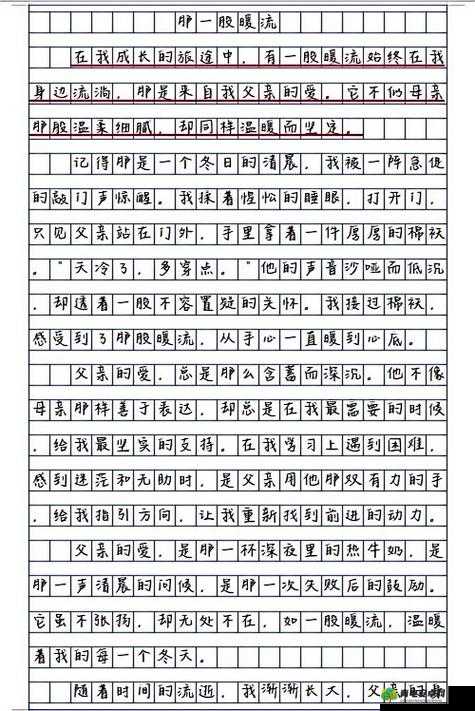 那一股暖流
在我成长的旅途中，有一股暖流始终在我
身边流淌，那是来自我父亲的爱。它不似母亲
那般温柔细腻，却同样温暖而坚定。
记得那是一个冬日的清晨，我被一阵急促
的敲门声惊醒。我揉着惺忪的睡眼，打开门，
只见父亲站在门外，手里拿着一件厚厚的棉袄
。“天冷了，多穿点。”他的声音沙哑而低沉
，却透着一股不容置疑的关怀。我接过棉袄，
感受到了那股暖流，从手心一直暖到心底。
父亲的爱，总是那么含蓄而深沉。他不像
母亲那样善于表达，却总是在我最需要的时候
，给我最坚实的支持。在我学习上遇到困难，
感到迷茫和无助时，是父亲用他那双有力的手
，给我指引方向，让我重新找到前进的动力。
父亲的爱，是那一杯深夜里的热牛奶，是
那一声清晨的问候，是那一次失败后的鼓励。
它虽不张扬，却无处不在，如一股暖流，温暖
着我的每一个冬天。
随着时间的流逝，我渐渐长大，父亲的身